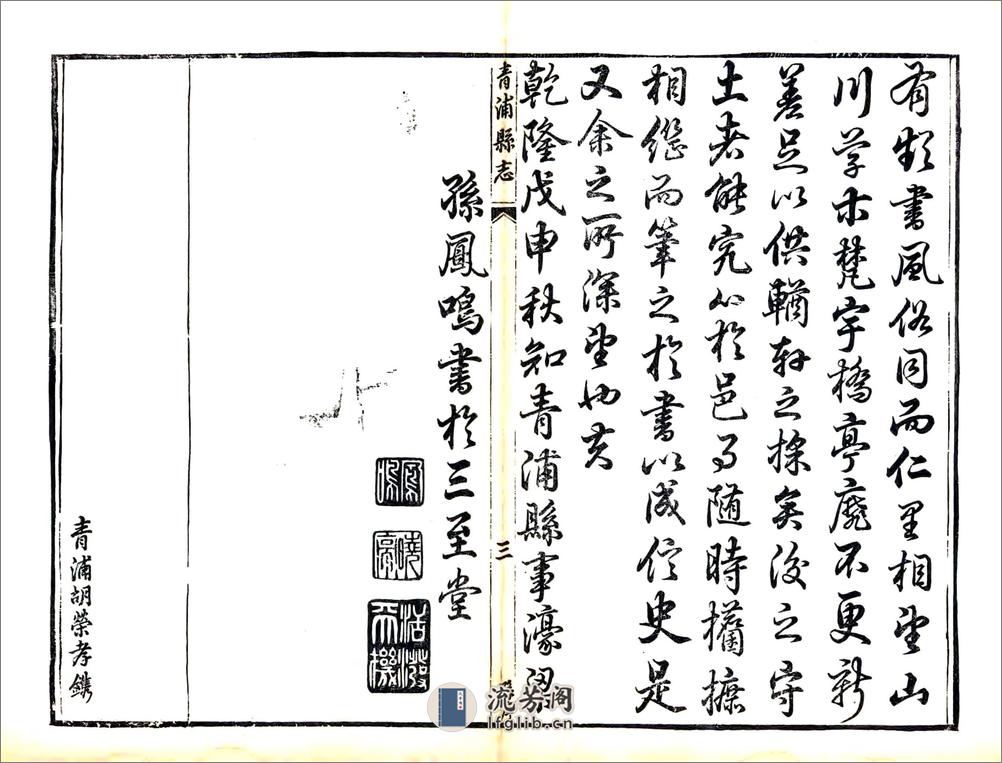 有書風俗同而仁里相望山
川木梵宇橋亭靡不更新
差足以供輶軒之採矣後之守
土者能究心於邑事隨時攟摭
相繼而筆之於書以成信史是
又余之所深望也夫
乾隆戊申秋知青浦縣事濠梁
青浦縣志
三
孫鳳鳴書於三至堂
鳳鳴
曉亭
活潑天機
青浦胡榮孝鐫
流芳阁
lfglib.cn